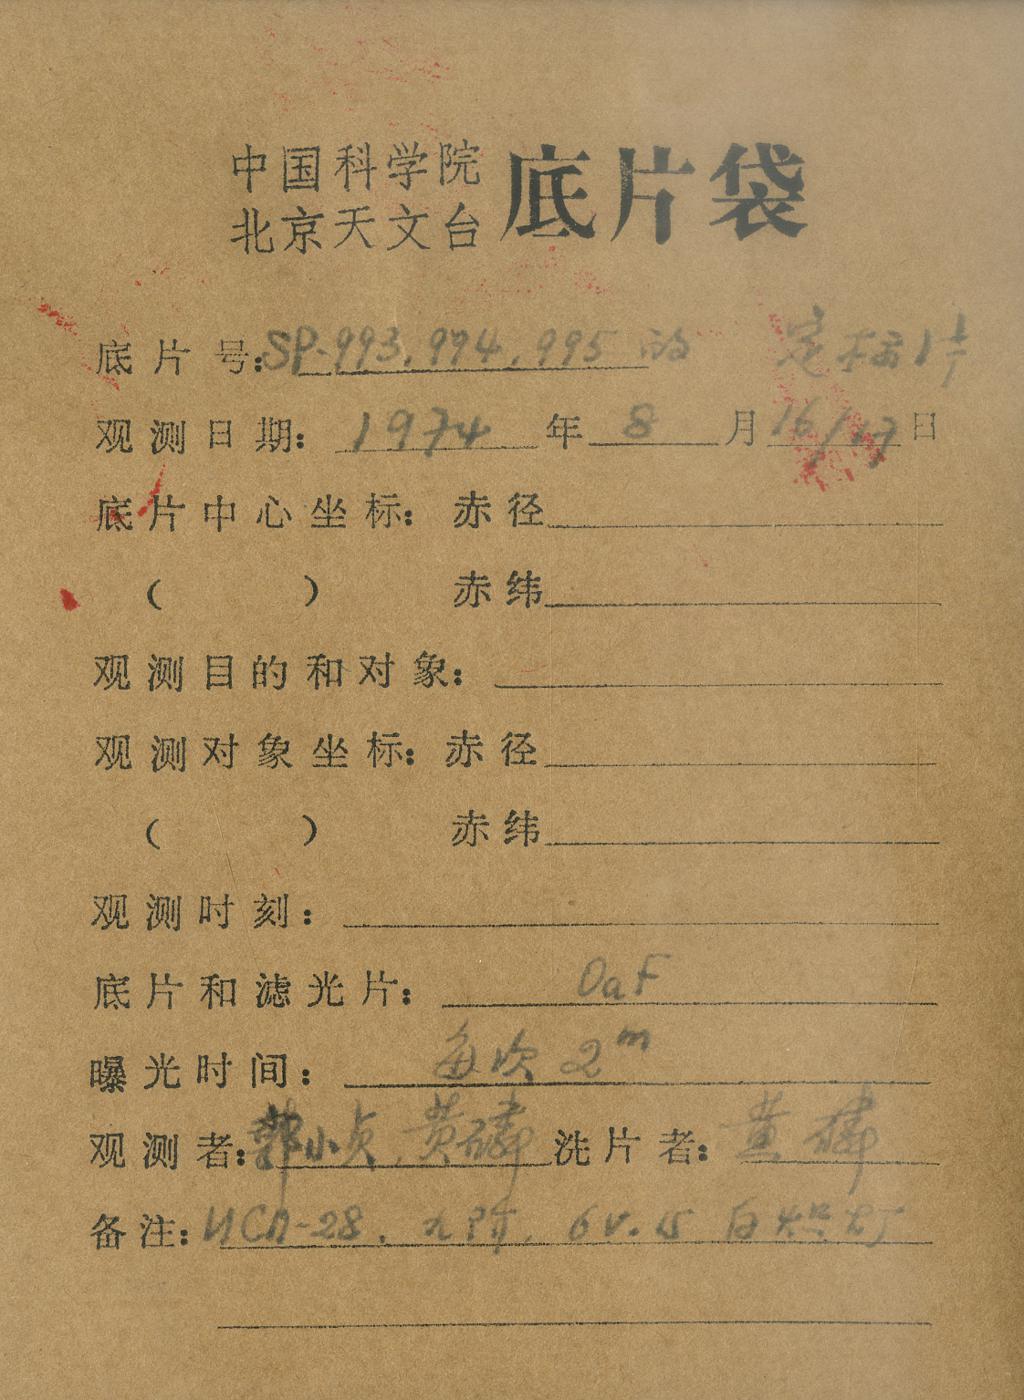 中国科学院
北京天文台 底片袋
底片号:SP-993.994.995 的 定标片
观测日期: 1974 年 8 月 16/17 日
底片中心坐标: 赤径
( ) 赤纬
观测目的和对象:
观测对象坐标: 赤径
( ) 赤纬
观测时刻:
底片和滤光片: OaF
曝光时间: 每次 2m
观测者: 郭小贞.黄磷 洗片者: 黄磷
备注: ИСП-28. 九阶. 6V. 白炽灯